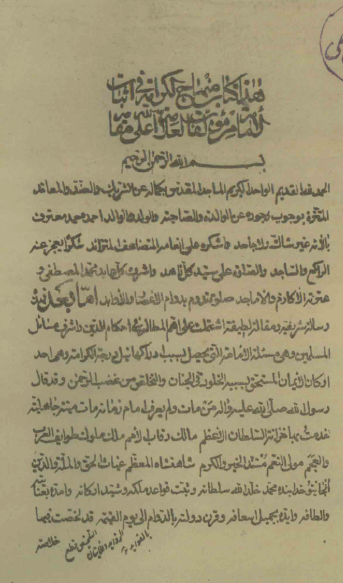 هذا كتاب منهاج الكرامة في اثبات
الإمامة
بسم الله الرحمن الرحيم
الحمد لله القديم الواحد الكريم الماجد المقدس بكماله عن الشريك والضد والمعاند
المتنزه بوجوب وجوده عن الوالدة والصاحبة والولد والوالد احمده حمد معترف
بالائه غير شاك ولا جاحد واشكره على انعامه المتضاعف المتزائد شكرا يعجز عنه
الراكع والساجد والصلوة على سيد كل زاهد واشرف كل عابد محمد المصطفى و
عترته الاكارم والاماجد صلوة تدوم بدوام الاعصار والاوابد اما بعد فهذه
رسالة شريفة ومقالة لطيفة اشتملت على اهم المطالب في احكام الدين واشرف مسائل
المسلمين وهي مسئلة الامامة التي يحصل بسبب ادراكها نيل درجة الكرامة وهي احد
اركان الايمان المستحق بسببه الخلود في الجنان والتخلص من غضب الرحمن وقد قال
رسول الله صلى الله عليه واله من مات ولم يعرف امام زمانه مات ميتة جاهلية
خدمت بها خزانة السلطان الاعظم مالك رقاب الامم ملك ملوك طوايف العرب
والعجم مولى النعم مسدى الخير والكرم شاهنشاه المعظم غياث الحق والملة والدين
الجايتو خدابنده محمد خلد الله سلطانه وثبت قواعد ملكه وشيد اركانه وامده بعنايته
والطافه وايده بجميل اسعافه وقرن دولته بالدوام الى يوم القيمة قد لخصت فيها
خلاصة